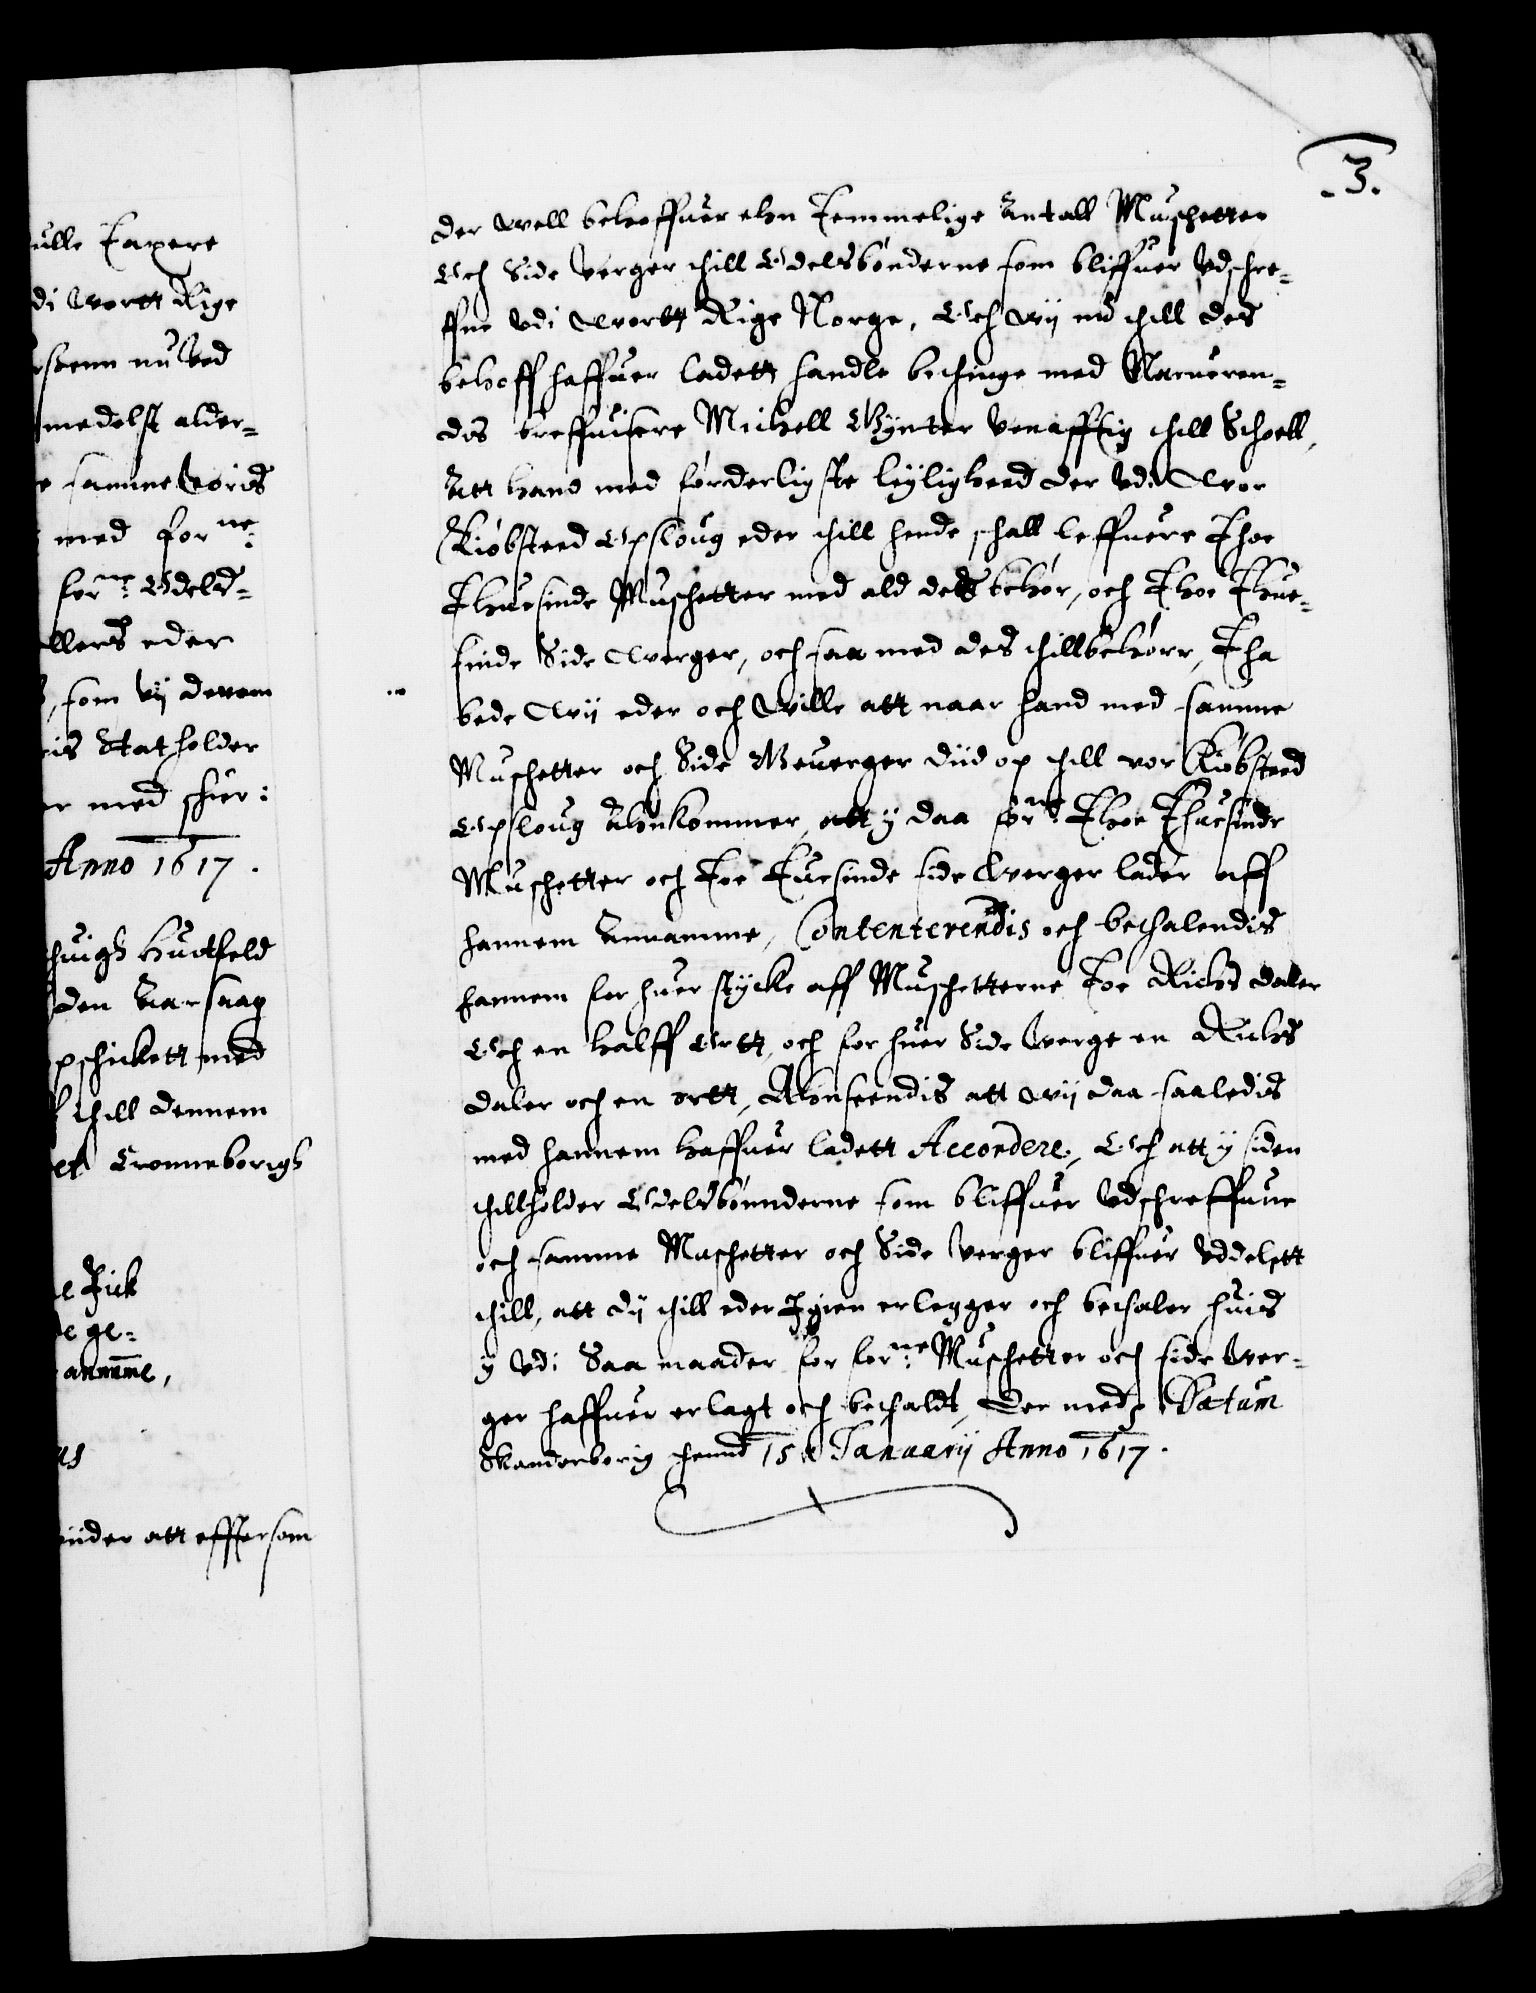 .3.
ulle Taxere
di wortt Rige
seenn nu Ved
medelst alder=
samme Voris
med forne:
forne: Odels=
llers eder
, som vij derom
is Statholder
er med scher:
Anno 1617.
huigh Huitfeld
den Aarsaag
schickett med
thill dennem
Cronneborigh
Fick
ge=
anname,
us
inder att effter som
der well behoffuer ehn Temmelige Antall Muschetter
Och Side Verger thill Odelsbönderne som bliffuer Vdschre=
ffne Vdi wortt Rige Norge, Och wij nu thill des
behoff haffuer ladett handle bethinge med Nerueren=
dis breffuisere Michell Wÿnter Vonafftig thill Schoell,
Att hand med förderligste leÿlighed der Vdi Wor
Kiöbsteed Opsloug eder thill hende schall leffuere Thoe
Thuesinde Muschetter med ald dets behör, och Thoe Thue=
sinde Side Werger, och saa med des thillbehörr, Tha
bede Wij eder och Wille att naar hand med samme
Muschetter och Side Weuerger diid op thill vor Kiöbsteed
Opsloug Ahnkommer, att ÿ daa forne: Thoe Thuesinde
Muschetter och Toe Tuesinde side Werger lader aff
hannem Annamme, Contenterendis och bethalendis
hannem for huer stÿcke aff Muschetterne Toe Richs daler
Och en halff Ortt, och for huer Side Verge en Richs
daler och en ortt, Ahnseendis att wij daa saaledis
med hannem haffuer ladett Accordere, Och att ÿ siden
thillholder Odelsbönnderne som bliffuer Vdschreffune
och samme Muschetter och Side Verger bliffuer Vddelett
thill, att dij thill eder Igien erlegger och bethaler huis
ÿ Vdi Saa maader for forne: Muschetter och side Ver=
ger haffuer erlagt och bethaldt, Der med Datum
Skanderborig thend 15 Januarij Anno 1617.